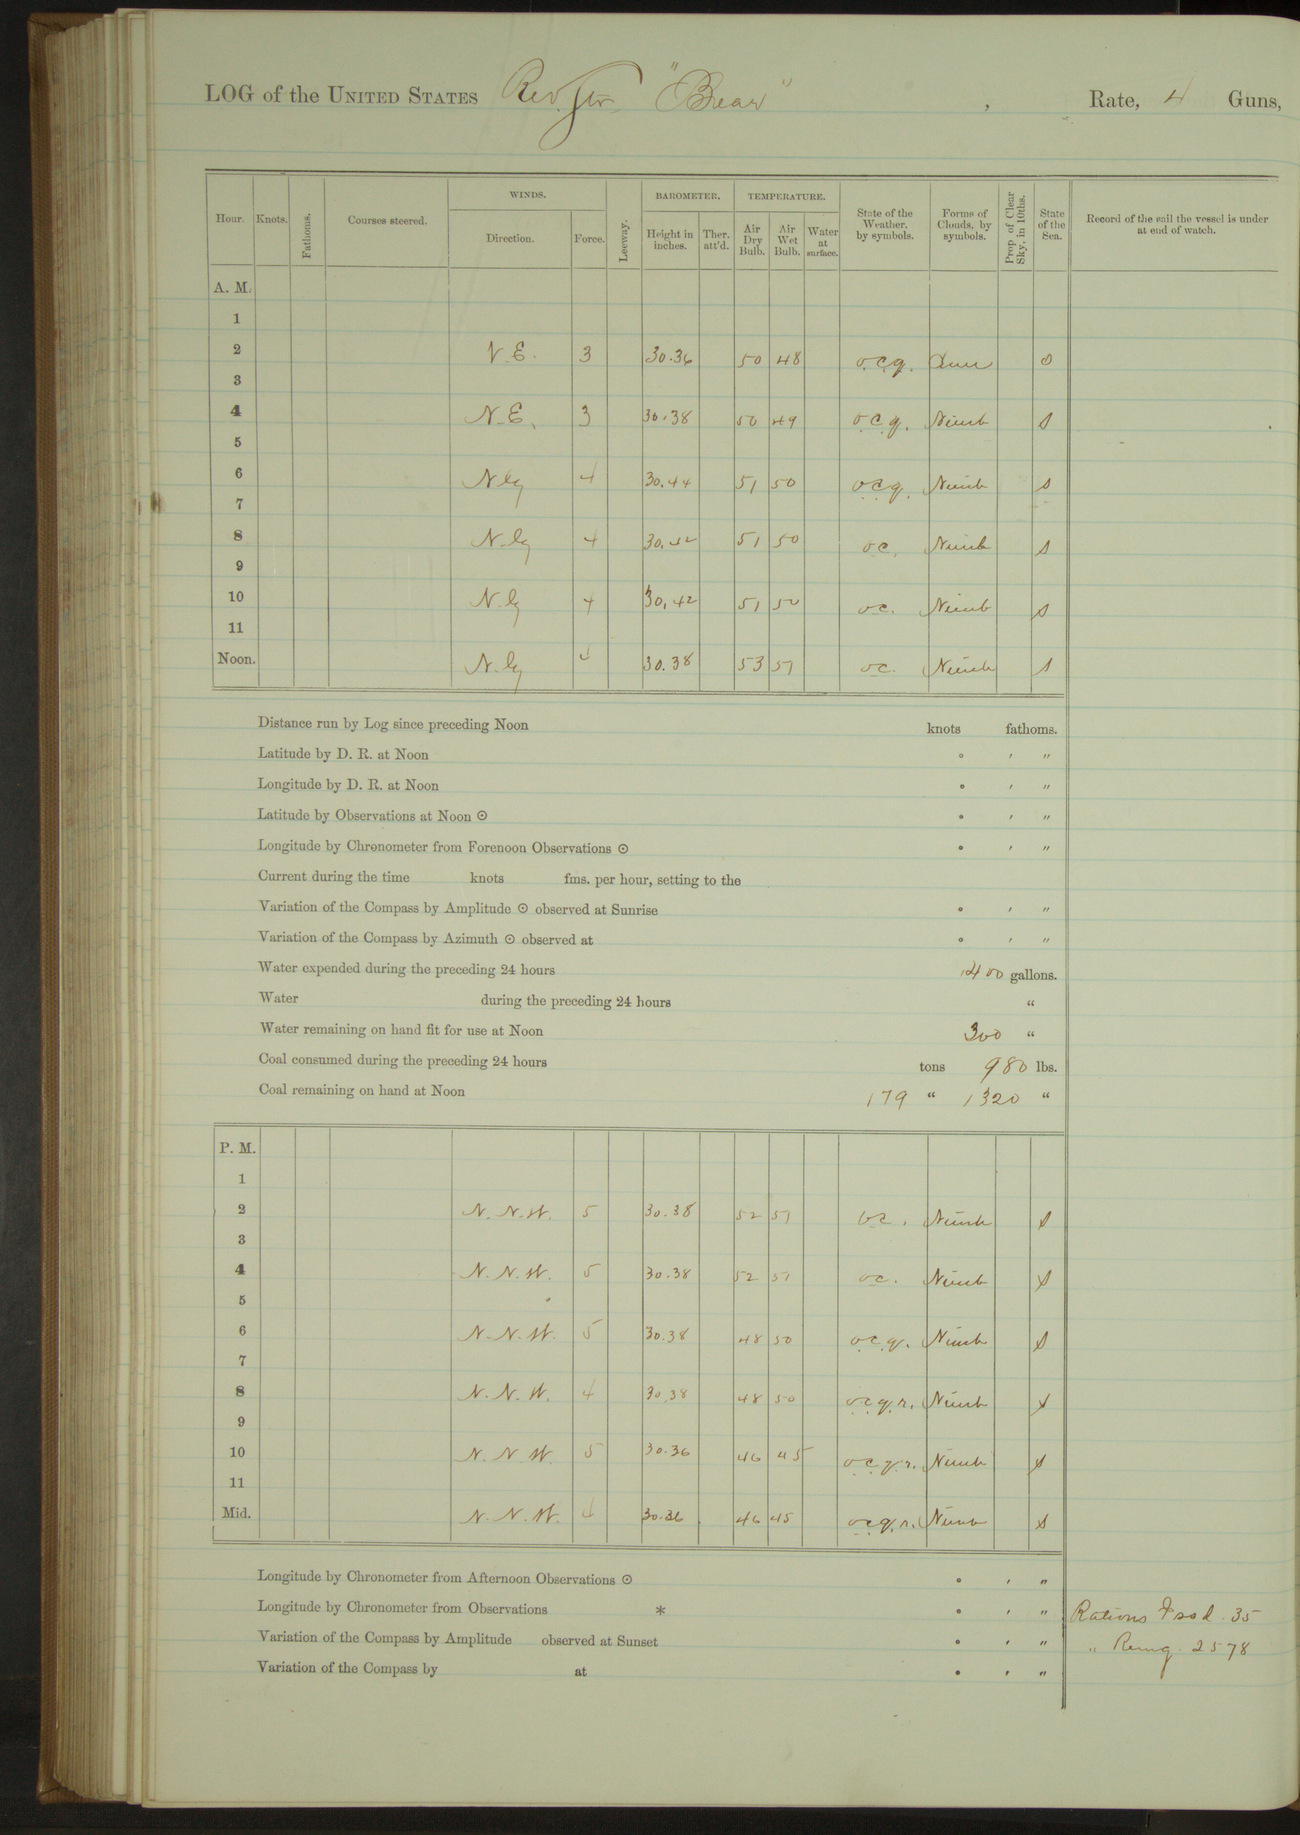 LOG of the UNITED STATES Rev. Str. "Bear" , Rate, 4 Guns,
Hour. Knots. Fathoms. Courses steered. WINDS. Direction. Force. Leeway. BAROMETER. Height in inches. Ther. att'd. TEMPERATURE. Air Dry Bulb. Air Wet Bulb. Water at surface. State of the Weather, by symbols. Forms of Clouds, by symbols. Prop of Clear Sky, in 10ths. State of the Sea. Record of the sail the vessel is under at end of watch.
A. M.
1
2 N.E. 3 30.36 50 48 o.c.q. s
3
4 N.E. 3 30.38 50 49 o.c.q. Nimb s
5
6 Nly 4 30.44 51 50 o.c.q. Nimb s
7
8 N.ly 4 30.42 51 50 o.c. Nimb s
9
10 N.ly 4 30.42 51 50 o.c. Nimb s
11
Noon. N.ly 4 30.38 53 51 o.c. Nimb s
Distance run by Log since preceding Noon knots fathoms.
Latitude by D. R. at Noon ° ′ ″
Longitude by D. R. at Noon ° ′ ″
Latitude by Observations at Noon ⊙ ° ′ ″
Longitude by Chronometer from Forenoon Observations ⊙ ° ′ ″
Current during the time knots fms. per hour, setting to the
Variation of the Compass by Amplitude ⊙ observed at Sunrise ° ′ ″
Variation of the Compass by Azimuth ⊙ observed at ° ′ ″
Water expended during the preceding 24 hours 400 gallons.
Water during the preceding 24 hours “
Water remaining on hand fit for use at Noon 300 “
Coal consumed during the preceding 24 hours tons 980 lbs.
Coal remaining on hand at Noon 179 “ 1320 “
P. M.
1
2 N.N.W. 5 30.38 52 51 o.c. Nimb s
3
4 N.N.W. 5 30.38 52 51 o.c. Nimb s
5
6 N.N.W. 5 30.38 48 50 o.c.q. Nimb s
7
8 N.N.W. 4 30.38 48 50 o.c.q.r. Nimb s
9
10 N.N.W. 5 30.36 46 45 o.c.q.r. Nimb s
11
Mid. N.N.W. 4 30.36 46 45 o.c.q.r. Nimb s
Longitude by Chronometer from Afternoon Observations ⊙ ° ′ ″
Longitude by Chronometer from Observations * ° ′ ″ Rations Issd. 35
Variation of the Compass by Amplitude observed at Sunset ° ′ ″ " Remg. 2578
Variation of the Compass by at ° ′ ″